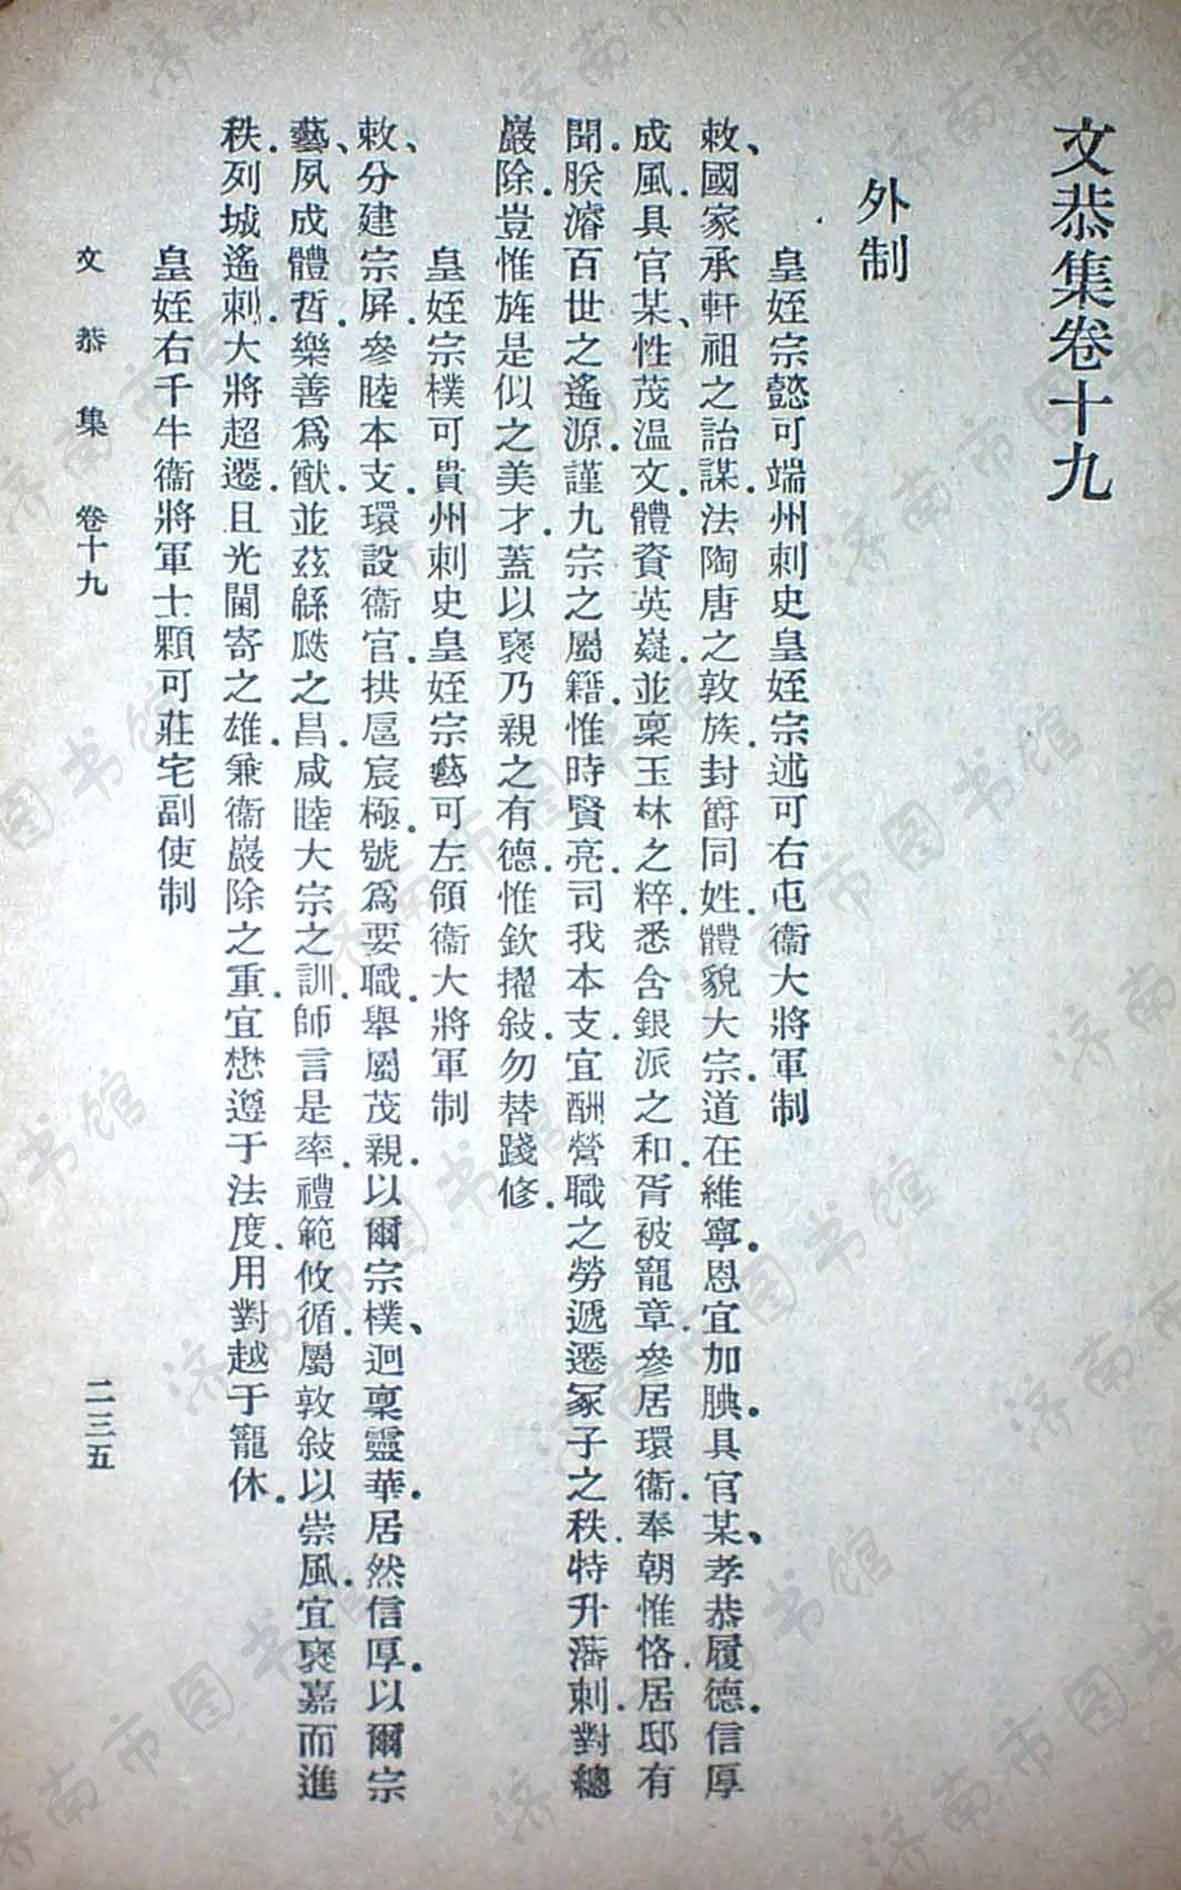 文恭集卷十九
外制
皇姪宗懿可端州刺史皇姪宗述可右屯衞大將軍制
敕、國家承軒祖之詒謀.法陶唐之敦族.封爵同姓.體貌大宗.道在維寧.恩宜加腆.具官某、孝恭履德.信厚
成風.具官某、性茂温文.體資英嶷.並稟玉林之粹.悉含銀派之和.胥被寵章.參居環衞.奉朝惟恪.居邸有
聞.朕濬百世之遙源.謹九宗之屬籍.惟時賢亮.司我本支.宜酬營職之勞.遞遷冢子之秩.特升藩刺.對總
巖除.豈惟旄是似之美才.蓋以襃乃親之有德.惟欽擢敍.勿替踐修.
皇姪宗樸可貴州刺史皇姪宗藝可左領衞大將軍制
敕、分建宗屏.參睦本支.環設衞官.拱扈宸極.號爲要職.舉屬茂親.以爾宗樸、迥稟靈華.居然信厚.以爾宗
藝、夙成體哲.樂善爲猷.並茲緜瓞之昌.咸睦大宗之訓.師言是率.禮範攸循.屬敦敍以崇風.宜襃嘉而進
秩.列城遙刺.大將超遷.且光閫寄之雄.兼衞巖除之重.宜懋遵于法度.用對越于寵休.
皇姪右千牛衞將軍士顆可莊宅副使制
文恭集 卷十九 二三五